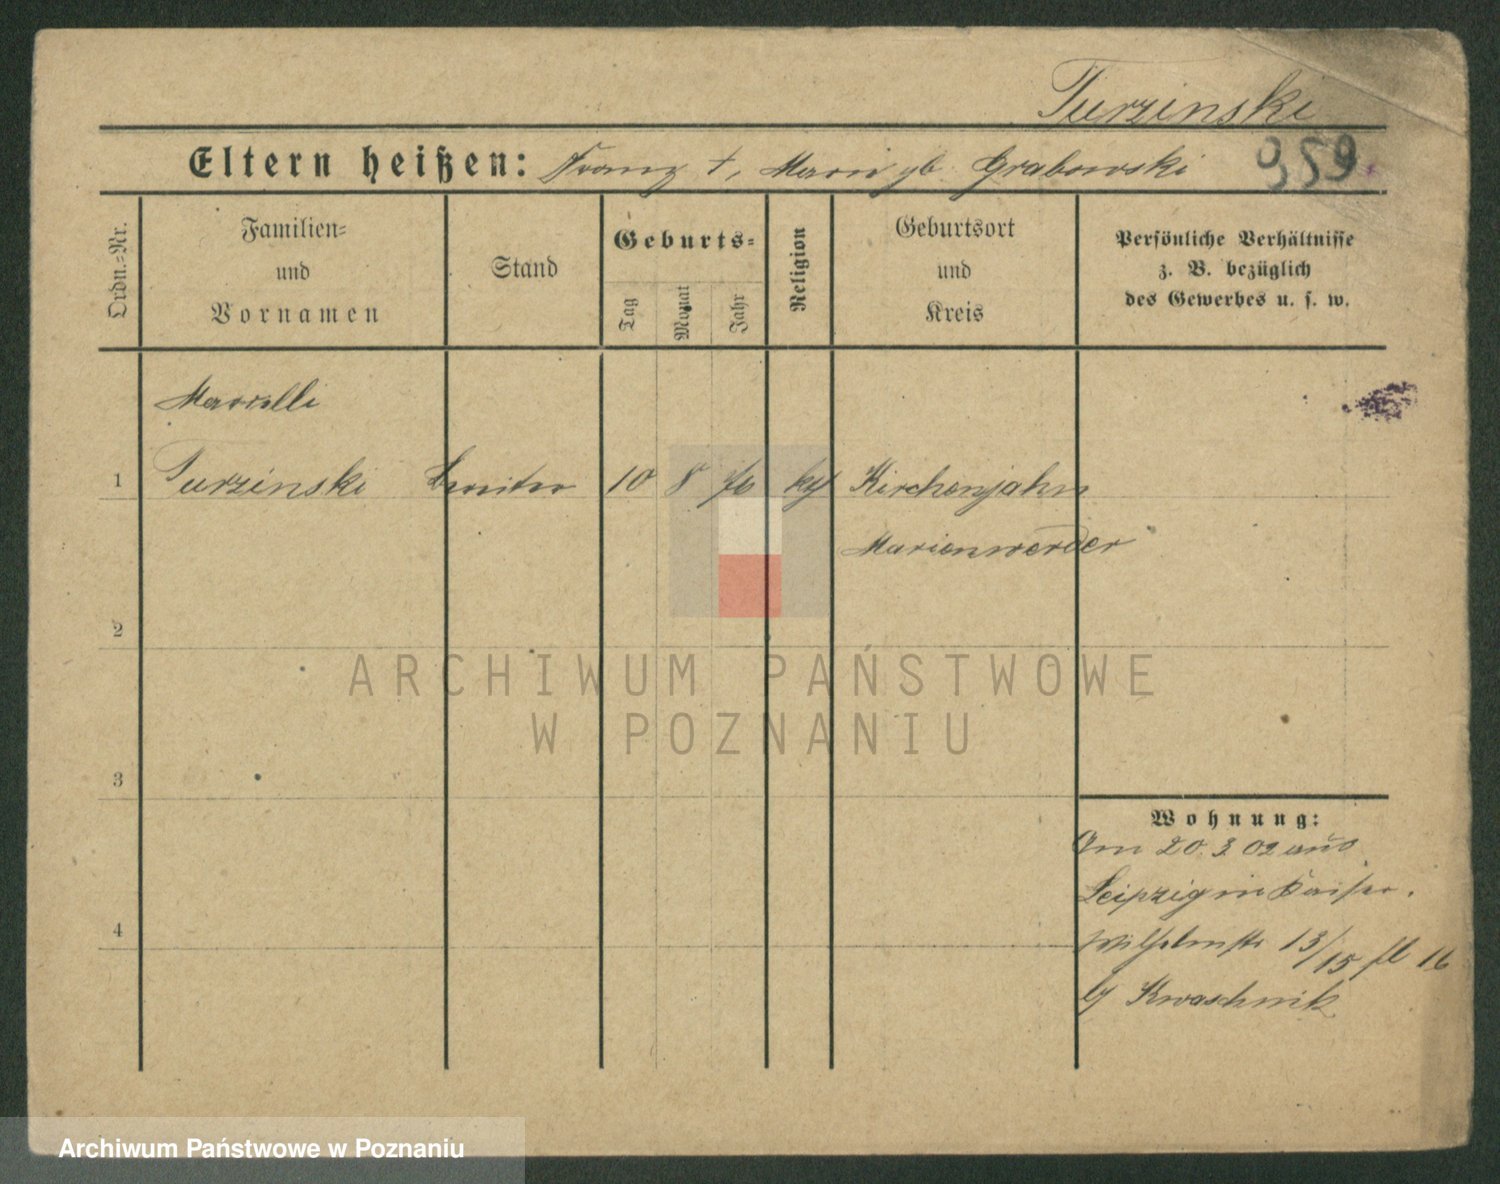 Turzinski
Eltern heißen: Franz †, Marie gb. Grabowski 959
Ordn.-Nr.
Familien-
und
Vornamen
Stand
Geburts-
Tag
Monat
Jahr
Religion
Geburtsort
und
Kreis
Persönliche Verhältnisse
z. B. bezüglich
des Gewerbes u. s. w.
Marcelli
1 Turzinski 10 8 Kirchenjahn
Marienwerder
2
3
4
Wohnung:
Am 20.3.02 aus
Leipzig in Kaiser.
Wilhelmstr 13/15 16
Kwaschnik
ARCHIWUM PAŃSTWOWE
W POZNANIU
Archiwum Państwowe w Poznaniu